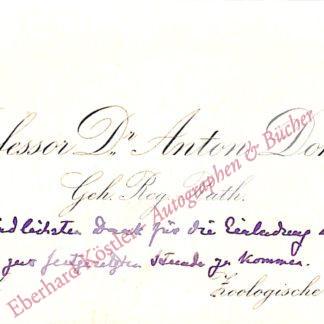 fessor Dr. Anton Do
Geh. Reg. Rath.
Dank für die Einladung
zur festgesetzten Stunde zu kommen.
Zoologische
Eberhard Köstler Autographen & Bücher